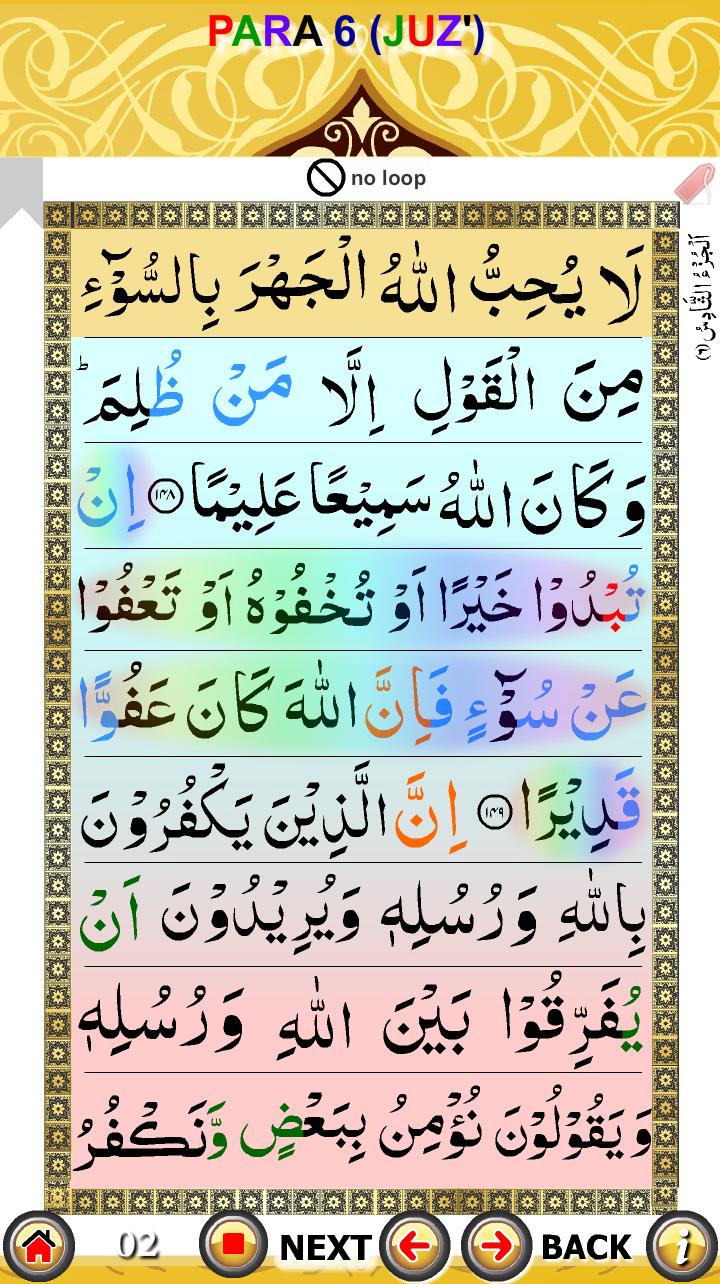 PARA 6 (JUZ')
no loop
اَلْجُزْءُ السَّادِسُ (٦)
لَا يُحِبُّ اللّٰهُ الْجَهْرَ بِالسُّوْٓءِ
مِنَ الْقَوْلِ اِلَّا مَنْ ظُلِمَ ؕ
وَكَانَ اللّٰهُ سَمِيْعًا عَلِيْمًا ﴿۱۴۸﴾ اِنْ
تُبْدُوْا خَيْرًا اَوْ تُخْفُوْهُ اَوْ تَعْفُوْا
عَنْ سُوْٓءٍ فَاِنَّ اللّٰهَ كَانَ عَفُوًّا
قَدِيْرًا ﴿۱۴۹﴾ اِنَّ الَّذِيْنَ يَكْفُرُوْنَ
بِاللّٰهِ وَرُسُلِهٖ وَيُرِيْدُوْنَ اَنْ
يُفَرِّقُوْا بَيْنَ اللّٰهِ وَرُسُلِهٖ
وَيَقُوْلُوْنَ نُؤْمِنُ بِبَعْضٍ وَّنَكْفُرُ
02 NEXT BACK i